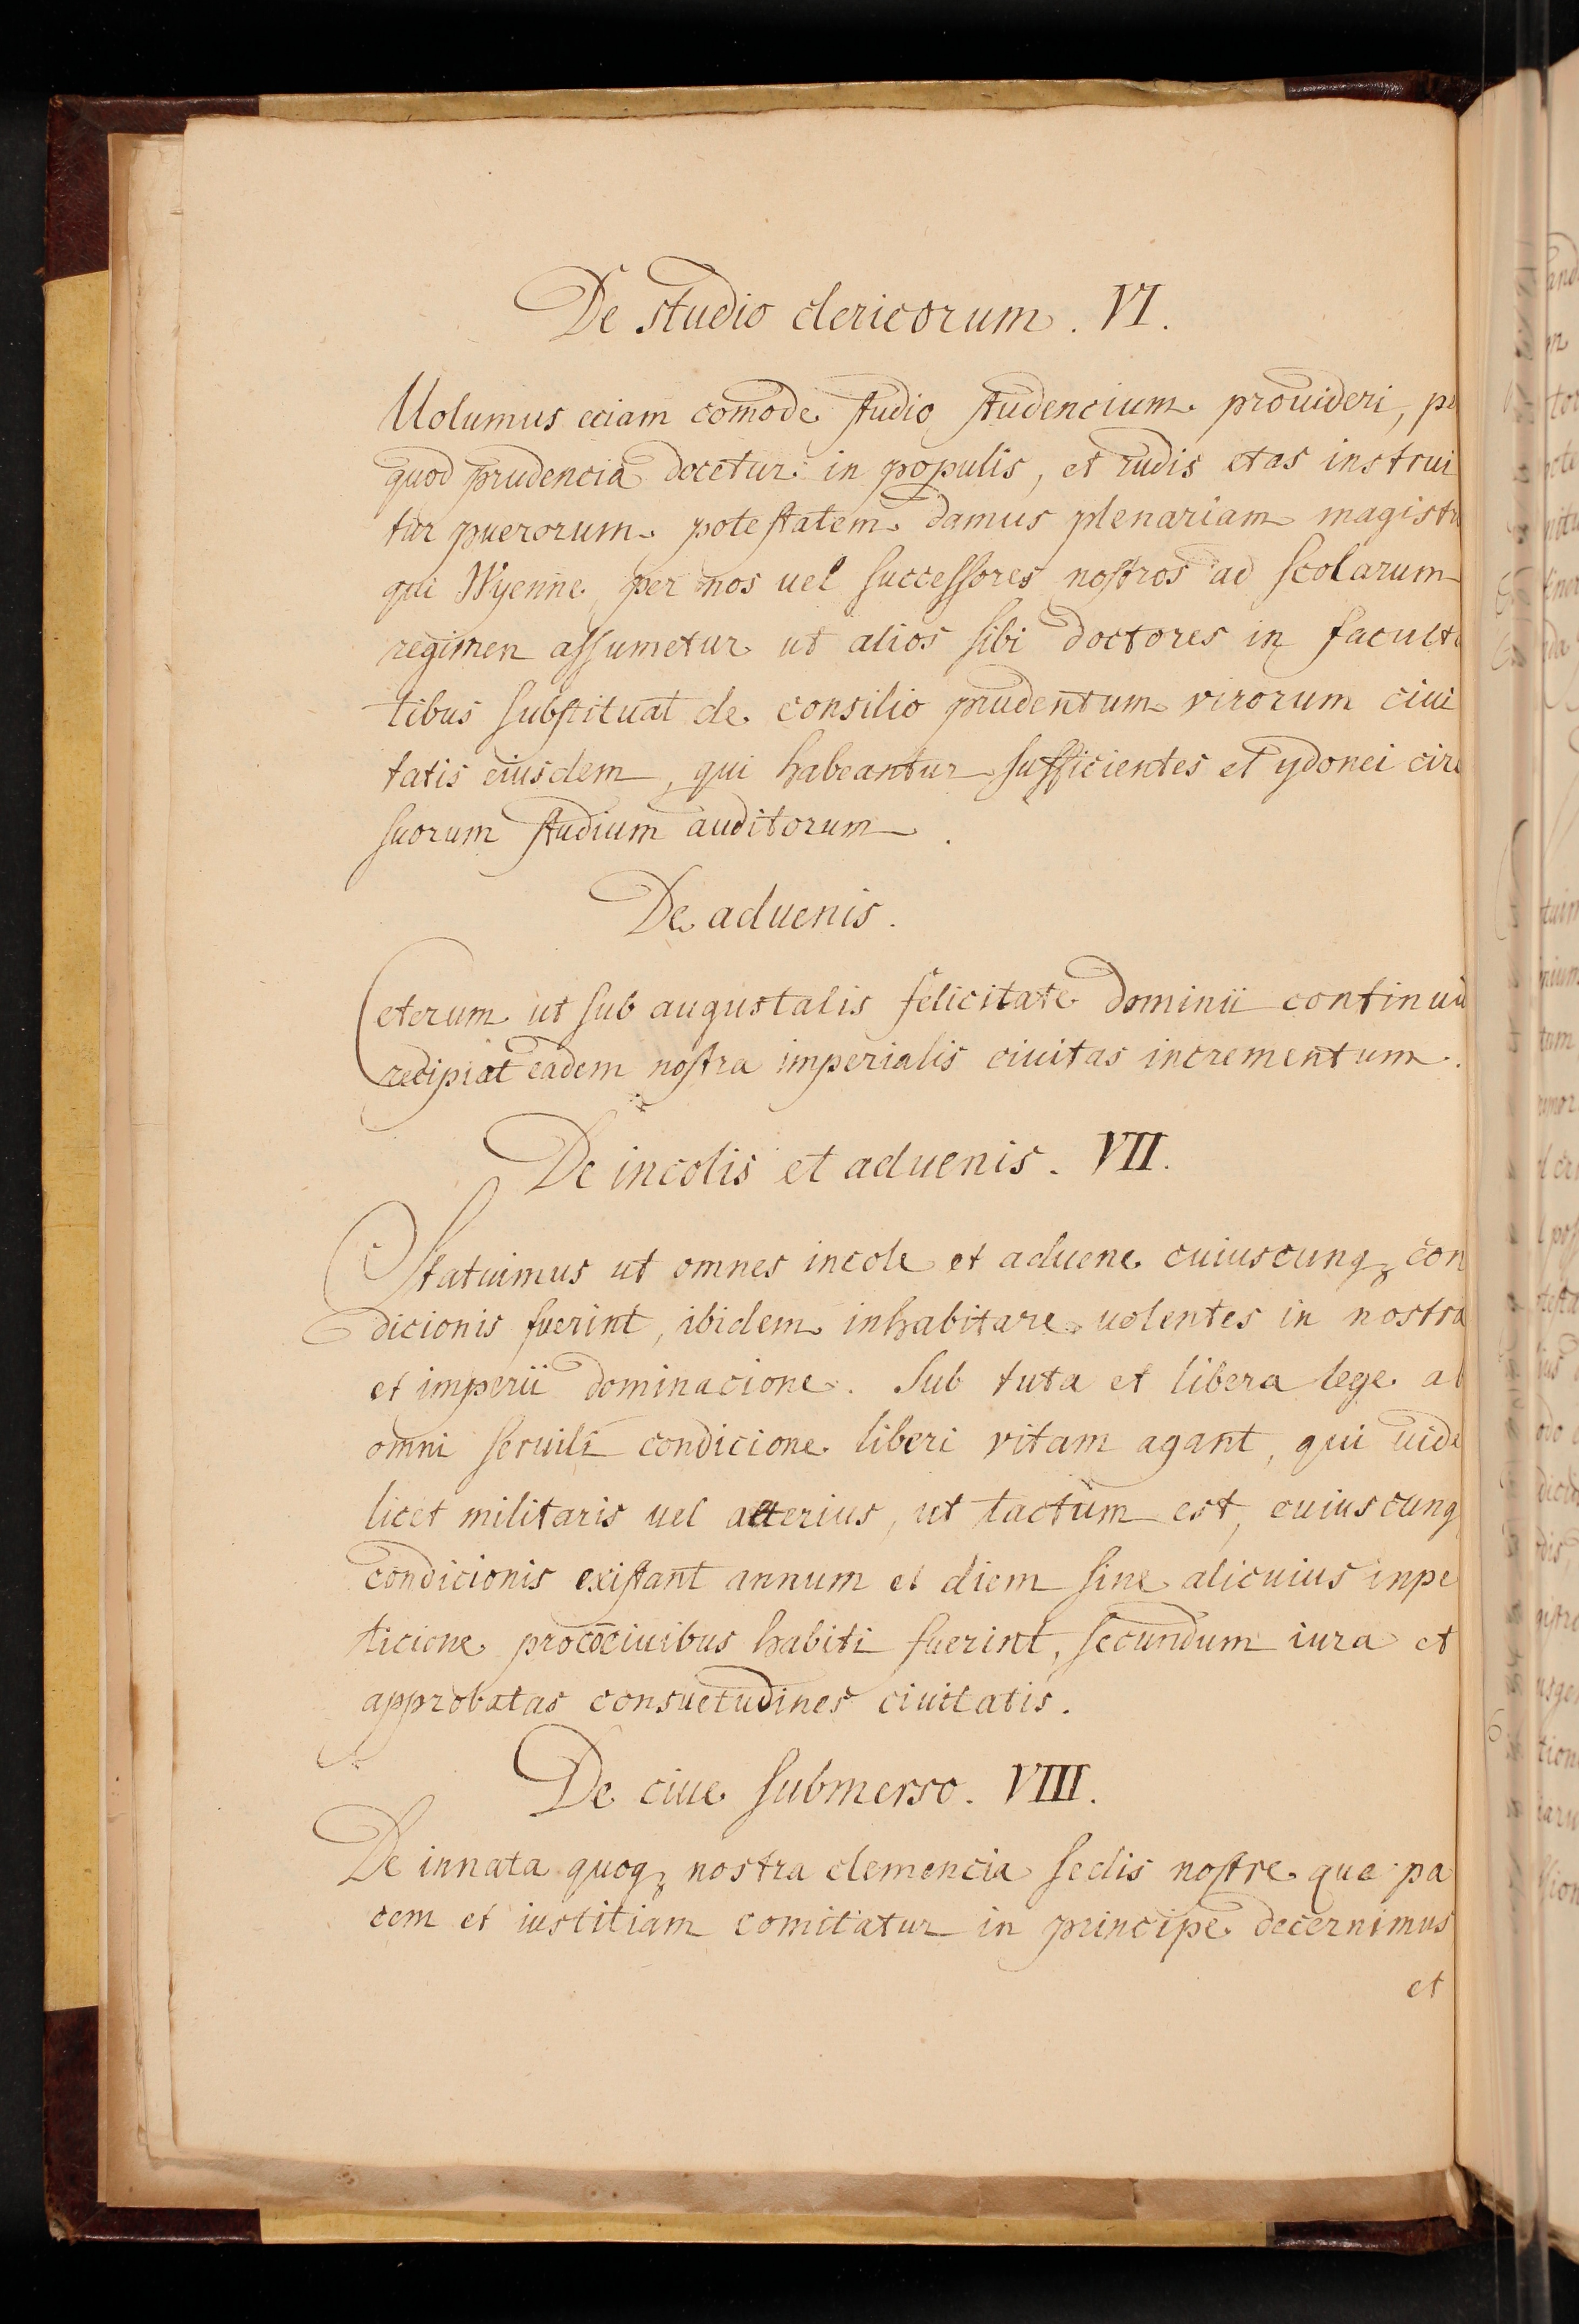 De studio clericorum. VI.
Uolumus eciam com̄ode studio studencium prouideri, pe
quod prudencia docetur in populis, et rudis etas instrui
tur puerorum potestatem damus plenariam magistr
qui Wyenne per nos uel successores nostros ad scolarum
regimen assumetur ut alios sibi doctores in faculta
tibus substituat de consilio prudentum virorum ciui
tatis eiusdem, qui habeantur sufficientes et ydonei circ
suorum studium auditorum.
De aduenis.
Ceterum ut sub augustalis felicitate dominii continuu
recipiat eadem nostra imperialis ciuitas incrementum.
De incolis et aduenis. VII.
Statuimus ut omnes incole et aduene cuiuscunqꝫ con
dicionis fuerint, ibidem inhabitare uolentes in nostra
et imperii dominacione. Sub tuta et libera lege ab
omni seruili condicione liberi vitam agant, qui uide
licet militaris uel alterius, ut tactum est, cuiuscunq
condicionis existant annum et diem sine alicuius inpe
ticione procōciuibus habiti fuerint, secundum iura et
approbatas consuetudines ciuitatis.
De ciue submerso. VIII.
De innata quoqꝫ nostra clemencia sedis nostre que pa
cem et iustitiam comitatur in principe decernimus
et